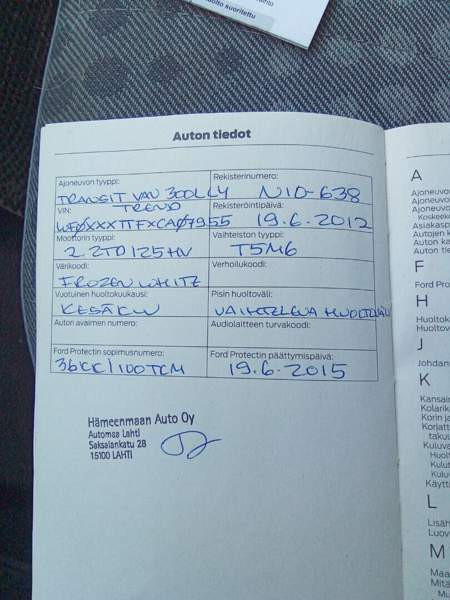 uolto suoritettu
Auton tiedot
Ajoneuvon tyyppi:
TRANSIT VAN 300L L4
TREND
Rekisterinumero:
NIO-638
VIN:
WFØXXXTTFXCAØ7955
Rekisteröintipäivä:
19.6.2012
Moottorin tyyppi:
2.2TD 125HV
Vaihteiston tyyppi:
T5M6
Värikoodi:
FROZEN WHITE
Verhoilukoodi:
Vuotuinen huoltokuukausi:
KESÄKUU
Pisin huoltoväli:
VAIHTELEVA HUOLTOVÄLI
Auton avaimen numero:
Audiolaitteen turvakoodi:
Ford Protectin sopimusnumero:
36KK/100TKM
Ford Protectin päättymispäivä:
19.6.2015
Hämeenmaan Auto Oy
Automaa Lahti
Saksalankatu 28
15100 LAHTI
A
Ajoneuvo
Ajoneuvo
Ajoneuvo
Koskeeko
Asiakaspa
Autojen k
Auton ka
Auton tie
F
Ford Pro
H
Huoltok
Huoltov
J
Johdan
K
Kansain
Kolarik
Korin ja
Korjatt
takuu
Kuluva
Huol
Kulut
Kulut
Käytt
L
Lisäh
Luov
M
Maa
Mitä
Mu